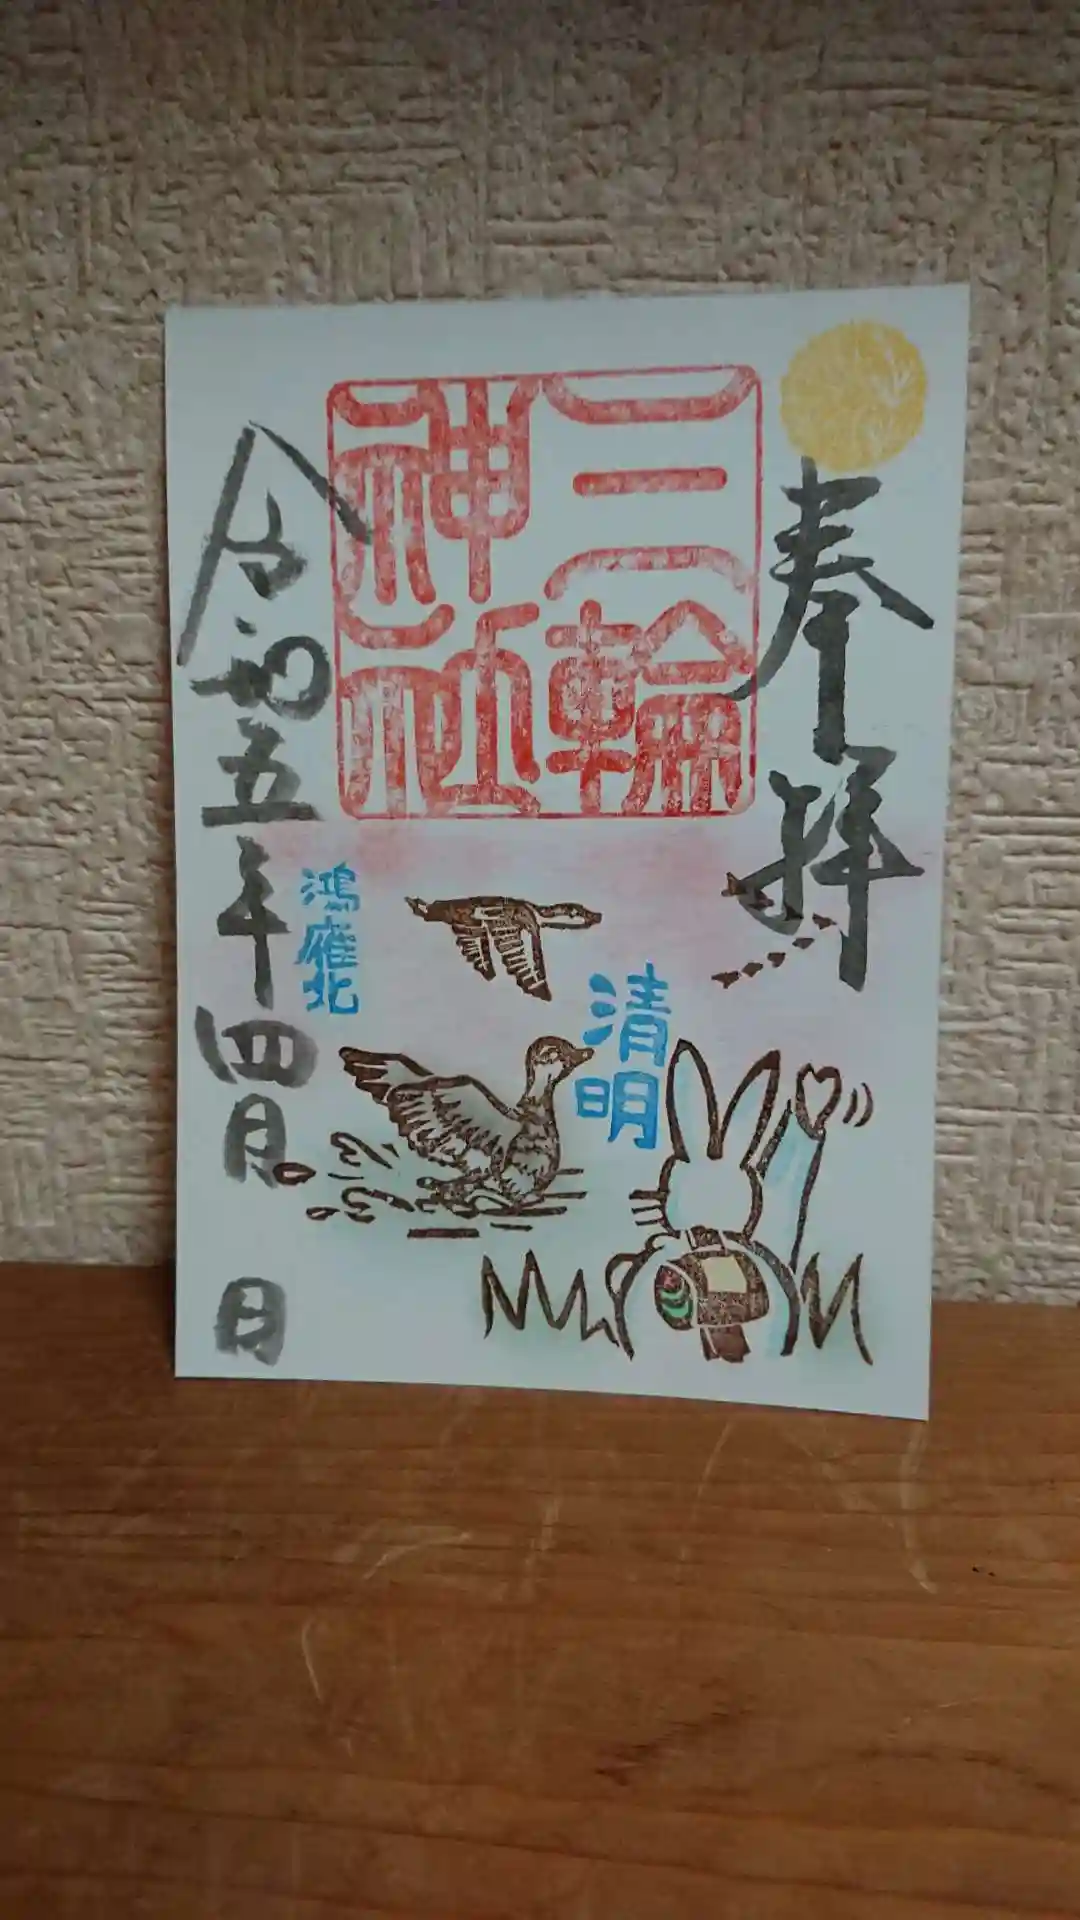 奉拝
三輪
神社
清明
鴻雁北
令和五年四月 日